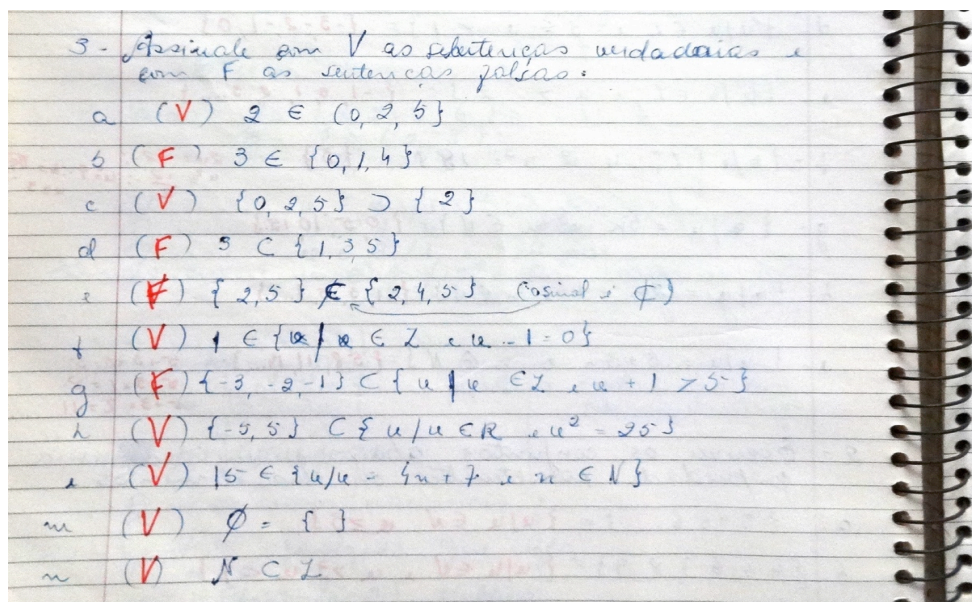 3 - Assinale com V as sebentenças verdadeiras e
com F as sentenças falsas.
a (V) 2 ∈ (0, 2, 5}
b (F) 3 ∈ {0, 1, 4}
c (V) {0, 2, 5} ⊃ {2}
d (F) 3 ⊂ {1, 3, 5}
e (F) {2, 5} {2, 4, 5} (o sinal é ⊄)
f (V) 1 ∈ {x/x ∈ Z e x - 1 = 0}
g (F) {-3, -2, -1} ⊂ {x/x ∈ Z e x + 1 > 5}
h (V) {-5, 5} ⊂ {x/x ∈ R e x² = 25}
i (V) 15 ∈ {x/x = 4n + 7 e n ∈ N}
m (V) Ø = { }
n (V) N ⊂ Z